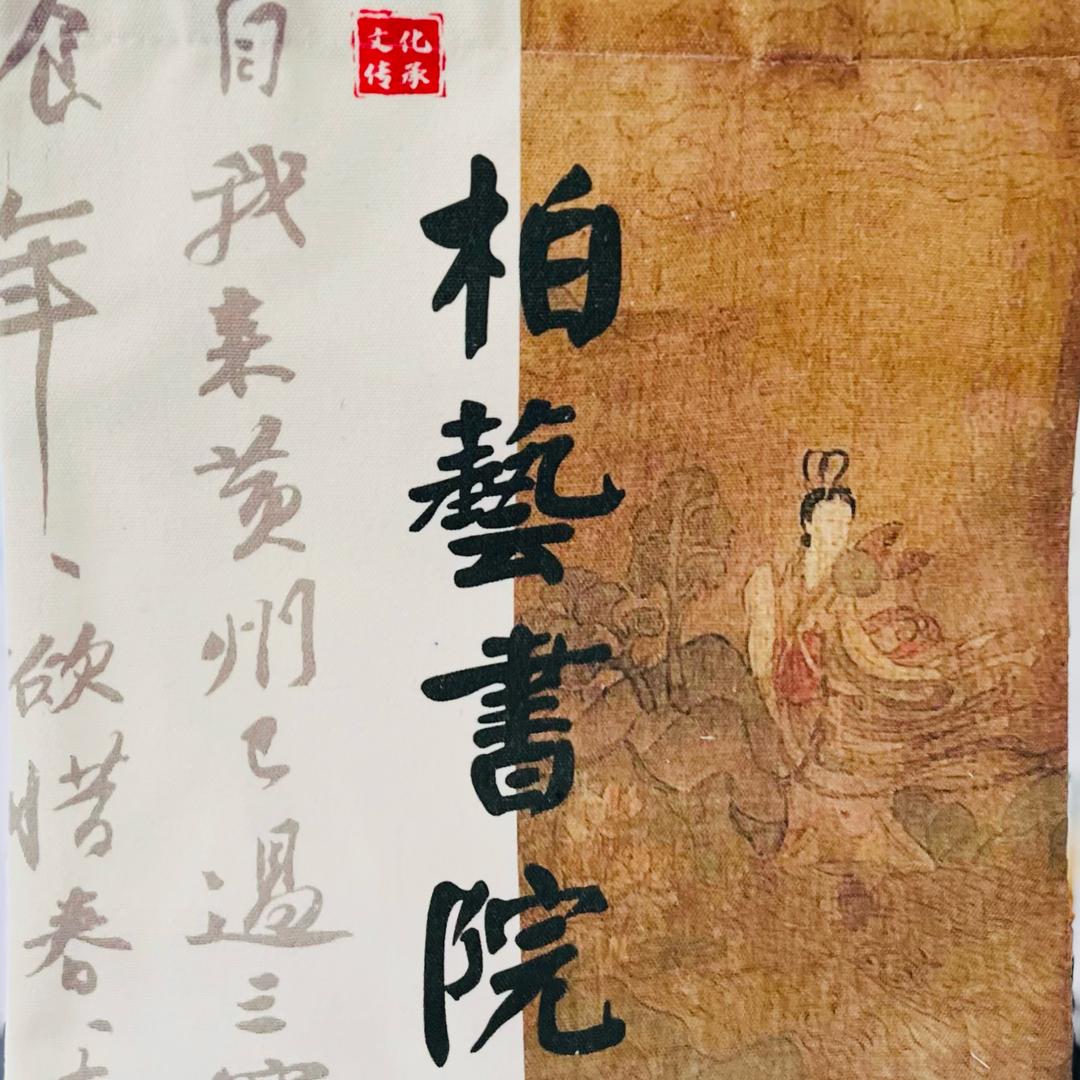 文化
传承
柏藝書院
自我来黄州已過三
食年、欲惜春、